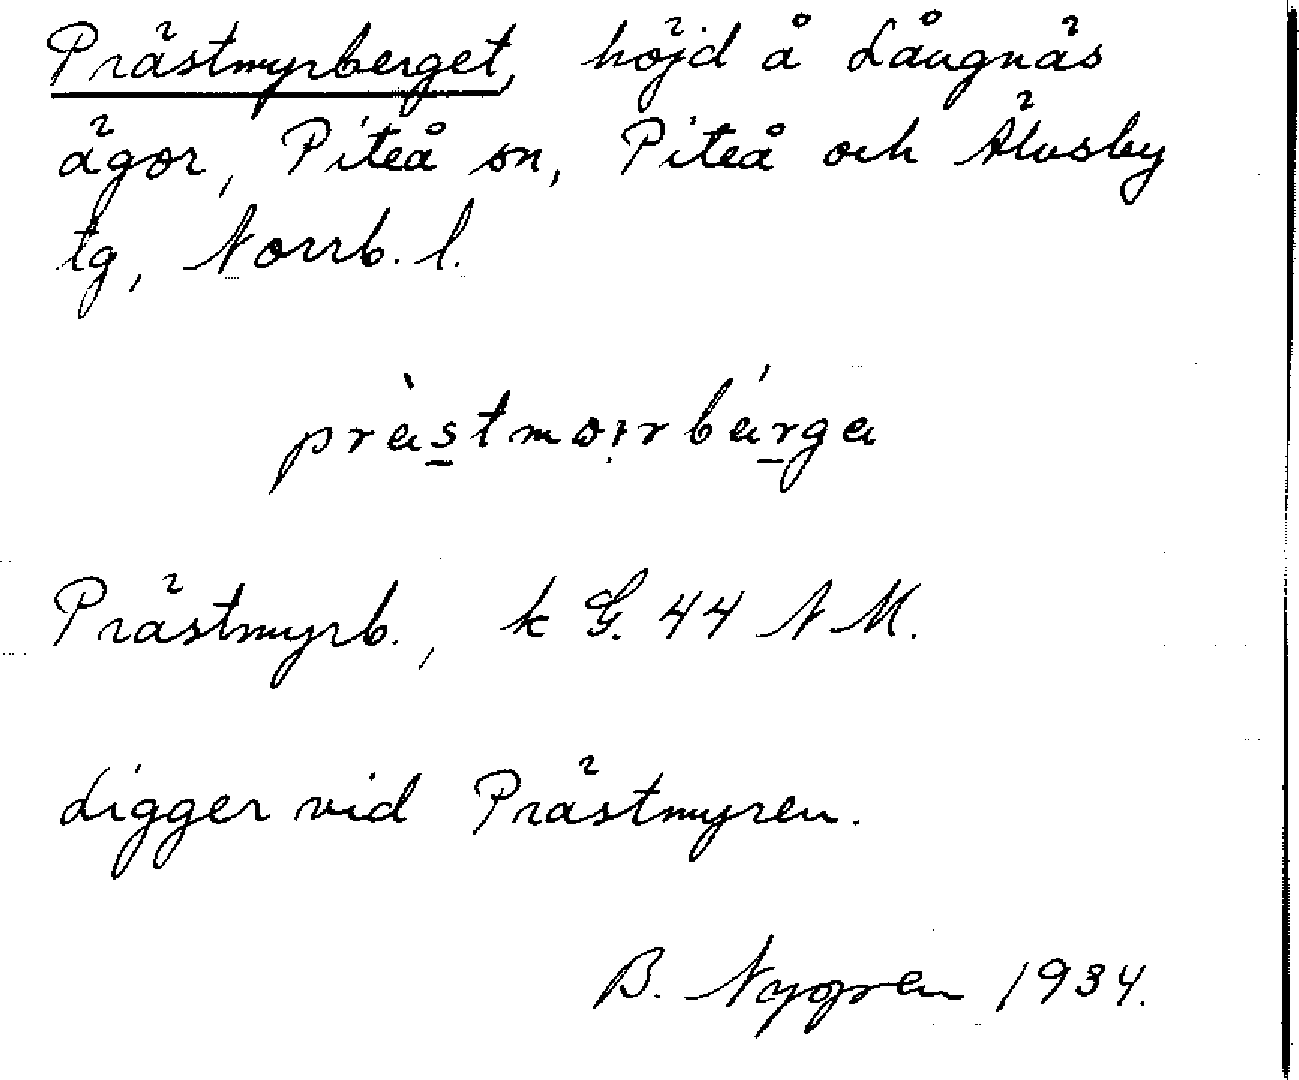 Prästmyrberget, höjd å Långnäs
ägor, Piteå sn, Piteå och Älvsby
tg, Norrb. l.
prästmoırbärga
Prästmyrb., k G. 44 N M.
Ligger vid Prästmyren.
B. Nygren 1934.